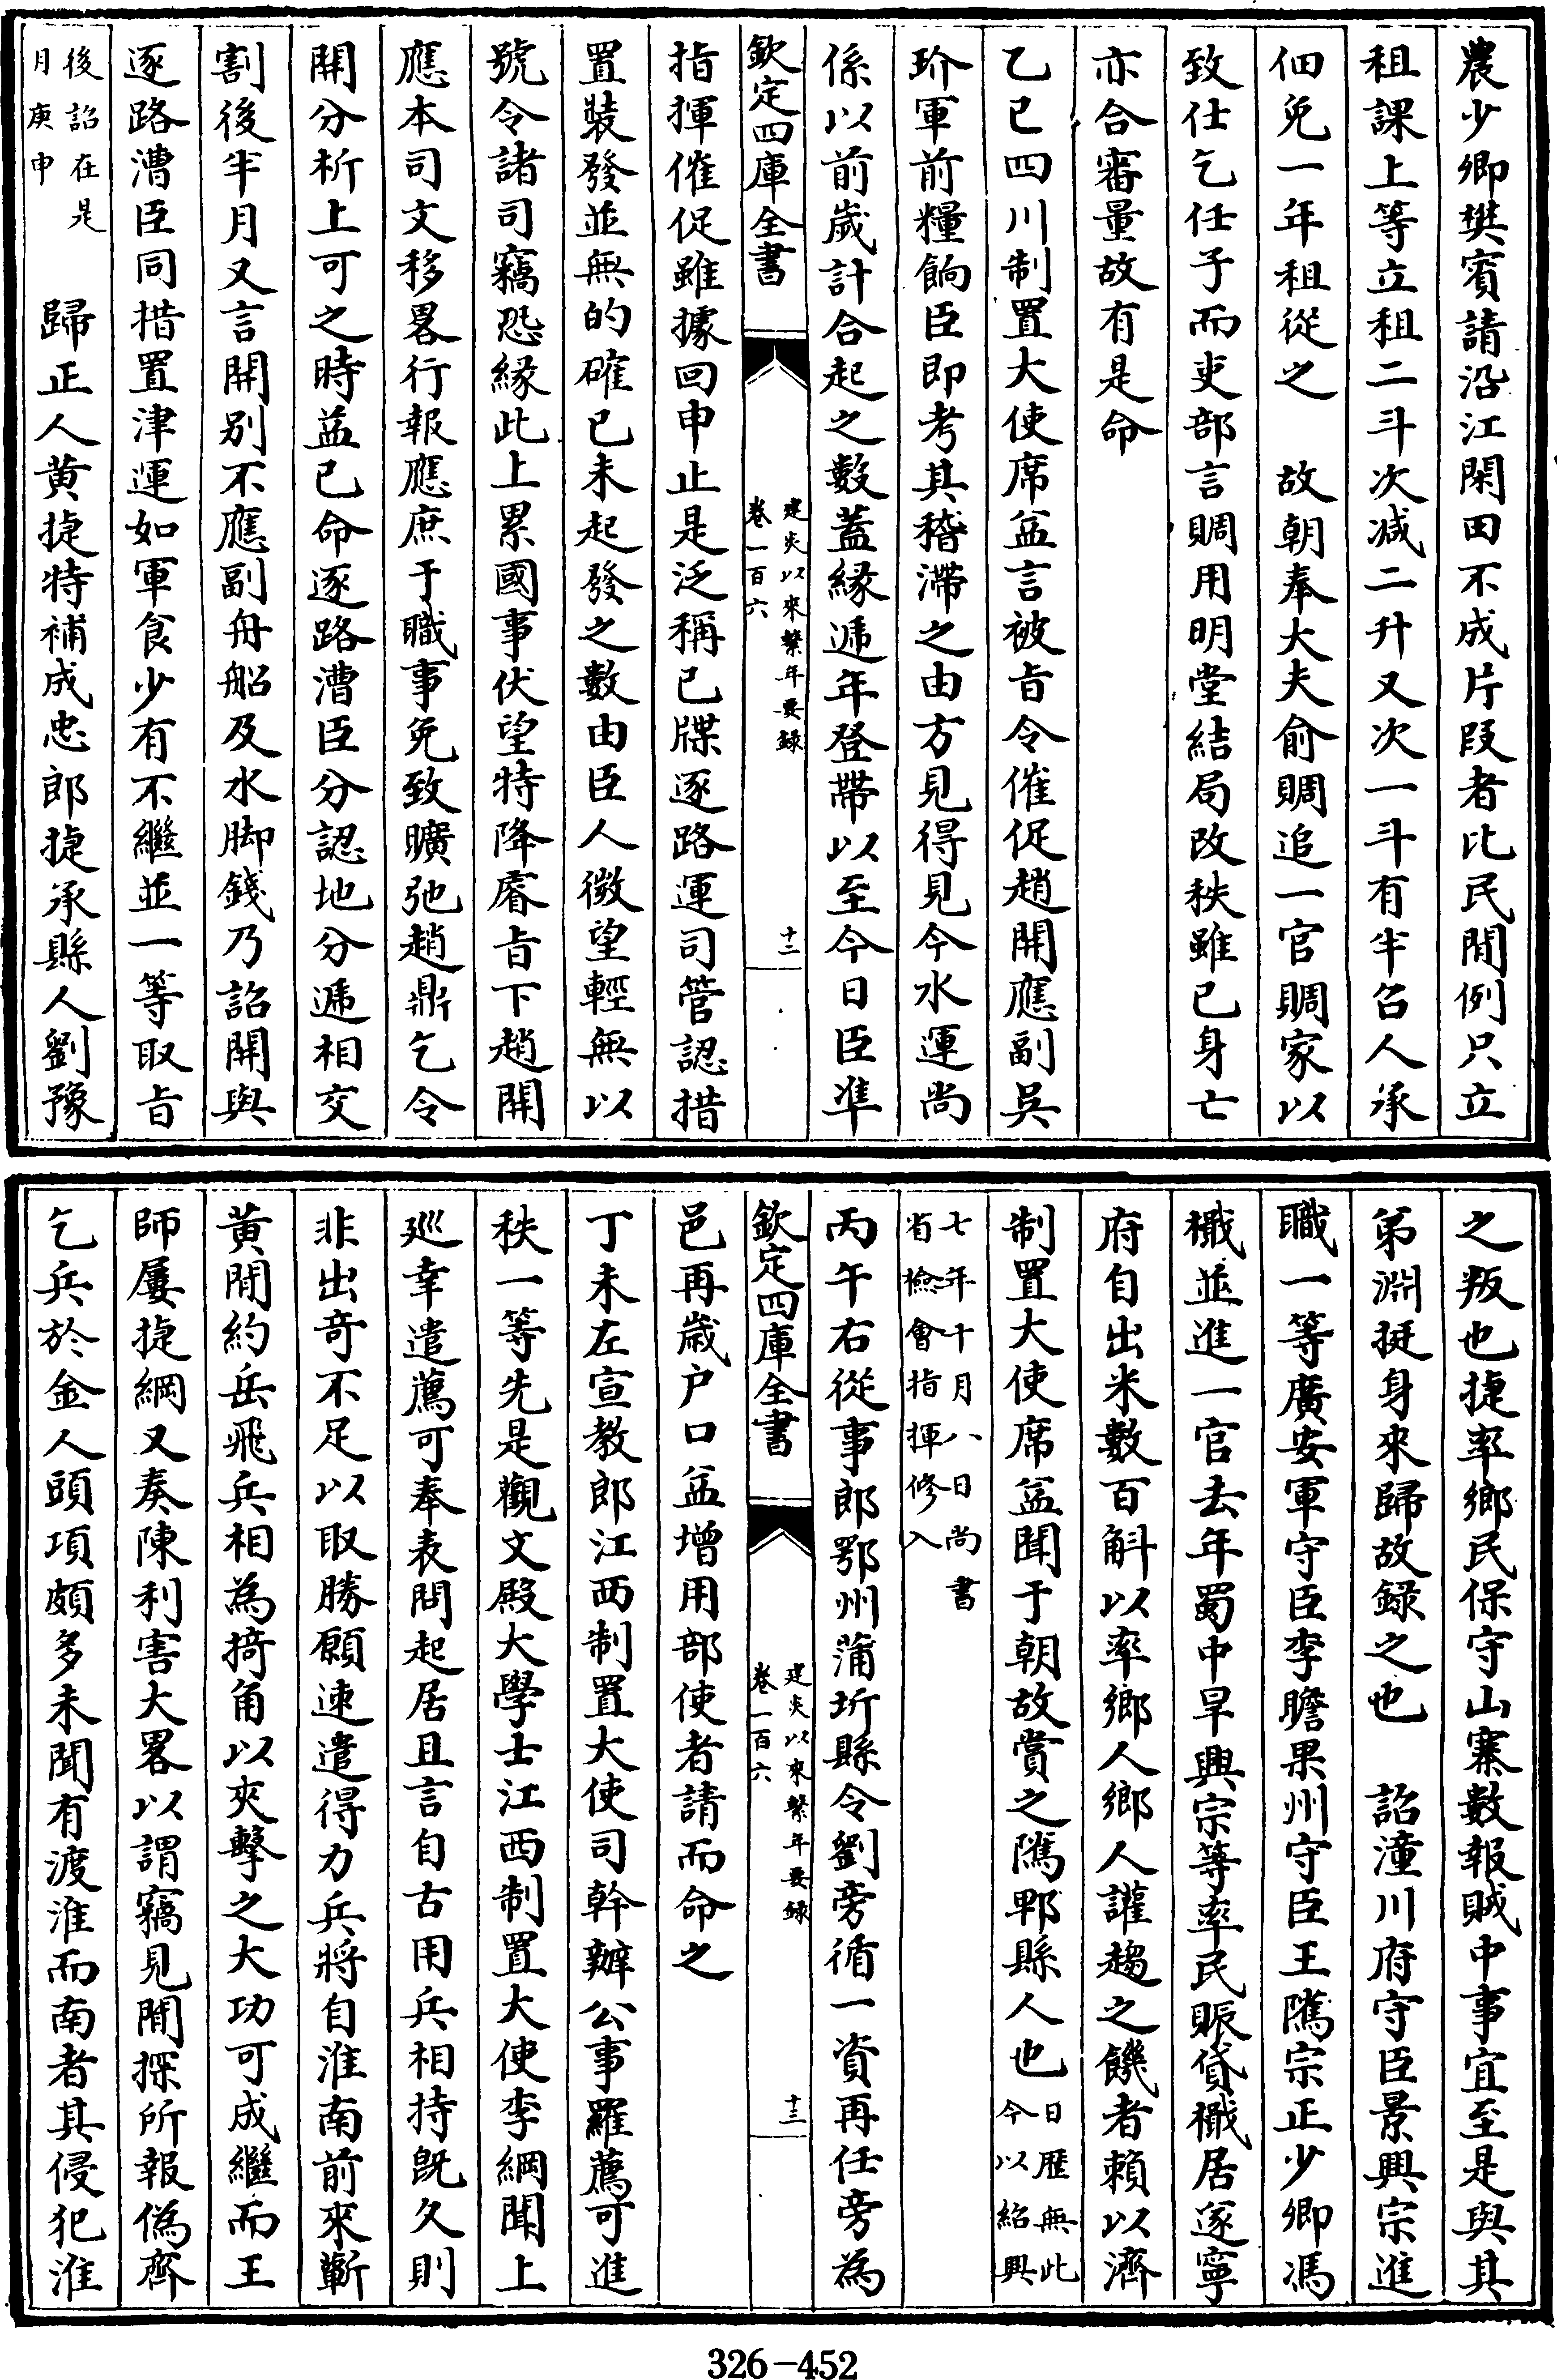 農少卿樊賓請沿江閑田不成片段者比民間例只立
租課上等立租二斗次减二升又次一斗有半召人承
佃免一年租從之　故朝奉大夫俞賙追一官賙家以
致仕乞任子而吏部言賙用明堂結局改秩雖已身亡
亦合審量故有是命
乙巳四川制置大使席益言被旨令催促趙開應副吳
玠軍前糧餉臣即考其稽滯之由方見得見今水運尚
係以前歲計合起之數蓋緣逓年登帶以至今日臣準
欽定四庫全書
建炎以來繫年要録
卷一百六
十二
指揮催促雖據回申止是泛稱已牒逐路運司管認措
置裝發並無的確已未起發之數由臣人微望輕無以
號令諸司竊恐緣此上累國事伏望特降睿旨下趙開
應本司文移畧行報應庶于職事免致曠弛趙鼎乞令
開分析上可之時益已命逐路漕臣分認地分逓相交
割後半月又言開别不應副舟船及水脚錢乃詔開與
逐路漕臣同措置津運如軍食少有不繼並一等取旨
後詔在是
月庚申
歸正人黄捷特補成忠郎捷承縣人劉豫
之叛也捷率鄉民保守山寨數報賊中事宜至是與其
弟淵挺身來歸故録之也　詔潼川府守臣景興宗進
職一等廣安軍守臣李瞻果州守臣王隲宗正少卿馮
檝並進一官去年蜀中早興宗等率民賑貸檝居遂寧
府自出米數百斛以率鄉人鄉人讙趨之饑者賴以濟
制置大使席益聞于朝故賞之隲郫縣人也
日歷無此
今以紹興
七年十月八日尚書
省檢會指揮修入
丙午右從事郎鄂州蒲圻縣令劉旁循一資再任旁為
欽定四庫全書
建炎以來繫年要録
卷一百六
十三
邑再歲户口益增用部使者請而命之
丁未左宣教郎江西制置大使司幹辦公事羅薦可進
秩一等先是觀文殿大學士江西制置大使李綱聞上
巡幸遣薦可奉表問起居且言自古用兵相持旣久則
非出奇不足以取勝願速遣得力兵將自淮南前來蘄
黄間約岳飛兵相為掎角以夾擊之大功可成繼而王
師屢捷綱又奏陳利害大畧以謂竊見間探所報偽齊
乞兵於金人頭項頗多未聞有渡淮而南者其侵犯淮
326-452